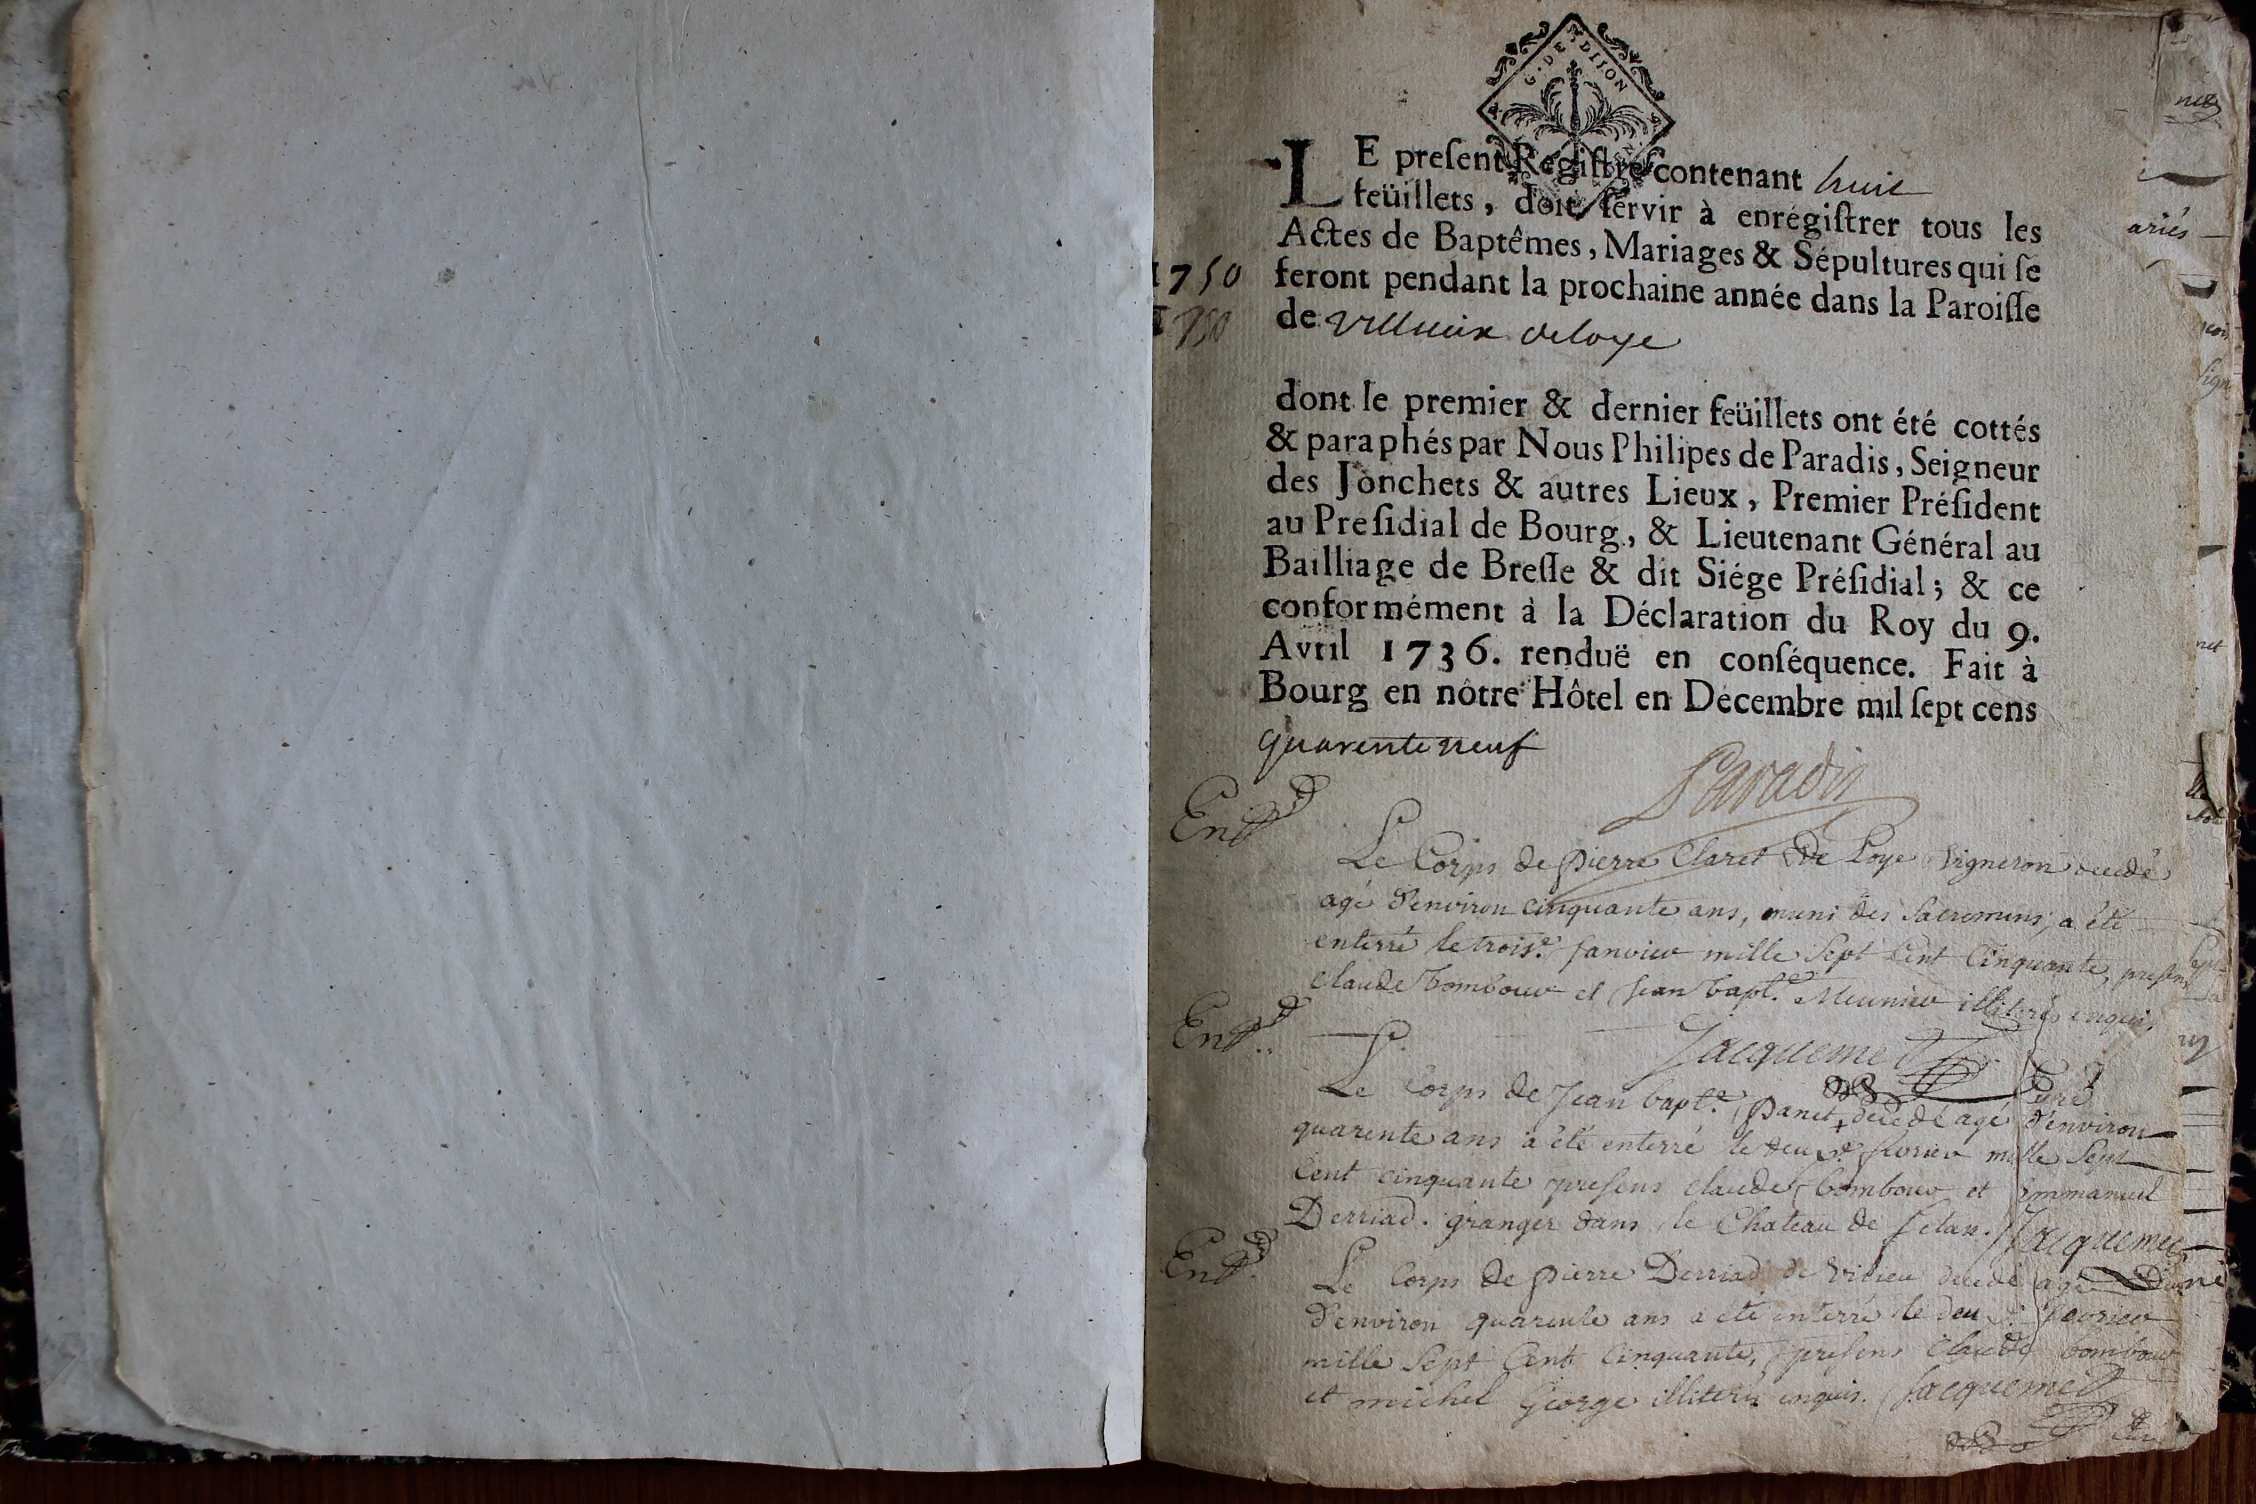 G. DE. DIJON
LE preſent Régiſtre contenant huit
feüillets, doit ſervir à enrégiſtrer tous les
Actes de Baptêmes, Mariages & Sépultures qui ſe
feront pendant la prochaine année dans la Paroiſſe
1750
1750
de Villieux deloye
dont le premier & dernier feüillets ont été cottés
& paraphés par Nous Philipes de Paradis, Seigneur
des Jonchets & autres Lieux, Premier Préſident
au Preſidial de Bourg, & Lieutenant Général au
Bailliage de Breſſe & dit Siége Préſidial; & ce
conformément à la Déclaration du Roy du 9.
Avril 1736. renduë en conſéquence. Fait à
Bourg en nôtre Hôtel en Décembre mil ſept cens
quarente neuf
Paradis
Le Corps de pierre Claret de Loye vigneron decedé
agé d'environ cinquante ans, muni des Sacremens, a été
enterré le trois.e Janvier mille Sept Cent Cinquante, presens
claude Bombour et Jean bapt.e Meunier illiterés enquis.
Jacquemet
Le Corps de Jean bapt.e panet decedé agé d'environ
quarente ans a été enterré le deux.e fevrier mille Sept
Cent cinquante presens claude bombour et emmanuel
Derriad. granger dans le Chateau de Jetan. Jacquemet
Le Corps de pierre Derriad de vilieu decedé agé
d'environ quarente ans a été enterré le deux.e fevrier
mille Sept Cent Cinquante, presens Claude bombour
et michel George illiterés enquis. Jacquemet
ariés